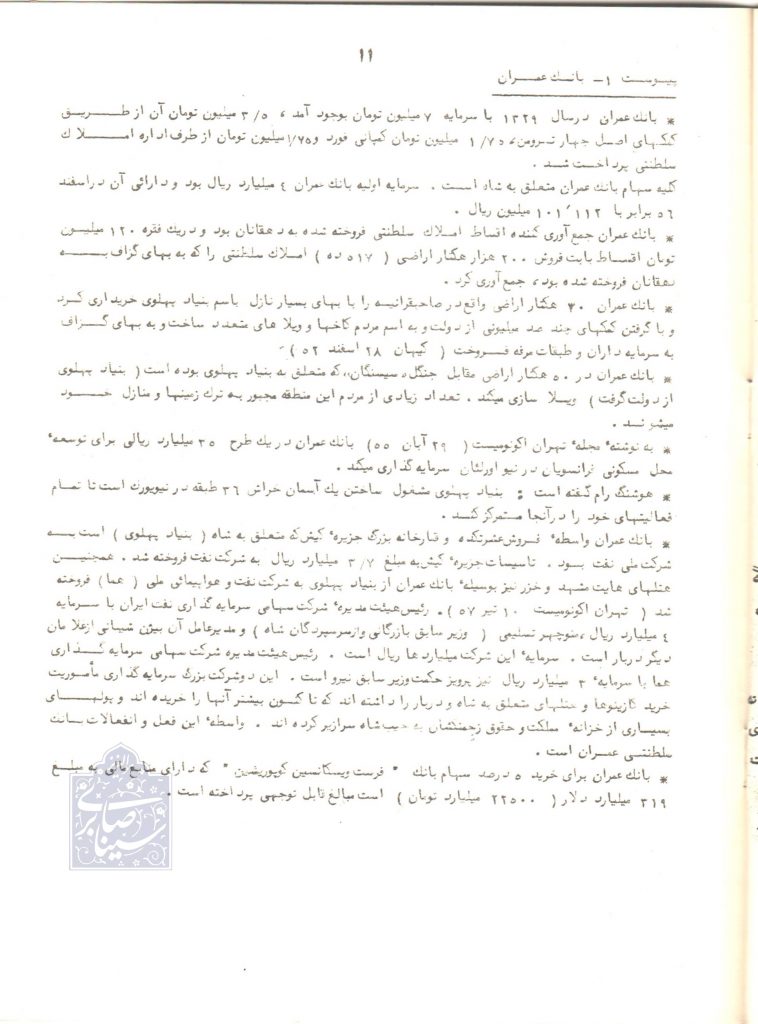 ۱۱
پیوست ۱- بانک عمران
* بانک عمران درسال ۱۳۲۹ با سرمایه ۷ میلیون تومان بوجود آمد، ۳/۵ میلیون تومان آن از طریق
کمکهای اصل چهار ترومن، ۱/۷۵ میلیون تومان کمپانی فورد و ۱/۷۵ میلیون تومان از طرف اداره املاک
سلطنتی پرداخت شد.
کلیه سهام بانک عمران متعلق به شاه است. سرمایه اولیه بانک عمران ٤ میلیارد ریال بود و دارائی آن در اسفند
۵۶ برابر با ۱۰۱٬۱۱۲ میلیون ریال.
* بانک عمران جمع‌آوری کننده اقساط املاک سلطنتی فروخته شده به دهقانان بود و در یک فقره ۱۲۰ میلیون
تومان اقساط بابت فروش ۲۰۰ هزار هکتار اراضی ( ۵۱۷ ده ) املاک سلطنتی را که به بهای گزاف به
دهقانان فروخته شده بود، جمع‌آوری کرد.
* بانک عمران ۳۰ هکتار اراضی واقع در صاحبقرانیه را با بهای بسیار نازل باسم بنیاد پهلوی خریداری کرد
و با گرفتن کمکهای چند صد میلیونی از دولت و به اسم مردم کاخها و ویلا های متعدد ساخت و به بهای گزاف
به سرمایه داران و طبقات مرفه فروخت ( کیهان ۲۸ اسفند ۵۲ ) -
* بانک عمران در ۵۰ هکتار اراضی مقابل جنگل، سیسنگان، که متعلق به بنیاد پهلوی بوده است ( بنیاد پهلوی
از دولت گرفت ) ویلا سازی میکند. تعداد زیادی از مردم این منطقه مجبور به ترک زمینها و منازل خود
میشوند.
* به نوشتهٔ مجلهٔ تهران اکونومیست ( ۲۹ آبان ۵۵ ) بانک عمران در یک طرح ۳۵ میلیارد ریالی برای توسعهٔ
محل مسکونی فرانسویان در نیو اورلئان سرمایه گذاری میکند.
* هوشنگ رام گفته است : بنیاد پهلوی مشغول ساختن یک آسمان خراش ۳۶ طبقه در نیویورک است تا تمام
فعالیتهای خود را در آنجا متمرکز کند.
* بانک عمران واسطهٔ فروش عشرتکده و قمارخانه بزرگ جزیرهٔ کیش که متعلق به شاه ( بنیاد پهلوی ) است به
شرکت ملی نفت بود. تاسیسات جزیرهٔ کیش به مبلغ ۳/۷ میلیارد ریال به شرکت نفت فروخته شد. همچنین
هتلهای هایت مشهد و خزر نیز بوسیلهٔ بانک عمران از بنیاد پهلوی به شرکت نفت و هواپیمائی ملی ( هما ) فروخته
شد ( تهران اکونومیست ۱۰ تیر ۵۷ ). رئیس هیئت مدیرهٔ شرکت سهامی سرمایه گذاری نفت ایران با سرمایه
٤ میلیارد ریال، منوچهر تسلیمی ( وزیر سابق بازرگانی و از سرسپردگان شاه ) و مدیرعامل آن بیژن شیبانی از غلامان
دیگر دربار است. سرمایهٔ این شرکت میلیارد ها ریال است. رئیس هیئت مدیره شرکت سهامی سرمایه گذاری
هما با سرمایهٔ ۲ میلیارد ریال نیز پرویز حکمت وزیر سابق نیرو است. این دو شرکت بزرگ سرمایه گذاری مأموریت
خرید کازینوها و هتلهای متعلق به شاه و دربار را داشته اند که تا کنون بیشتر آنها را خریده اند و پولهای
بسیاری از خزانهٔ مملکت و حقوق زحمتکشان به جیب شاه سرازیر کرده اند. واسطهٔ این فعل و انفعالات بانک
سلطنتی عمران است.
* بانک عمران برای خرید ۵ درصد سهام بانک " فرست ویسکانسین کوپوریشین " که دارای منابع مالی به مبلغ
۳۱۹ میلیارد دلار ( ۲۲۵۰۰ میلیارد تومان ) است مبالغ قابل توجهی پرداخته است.